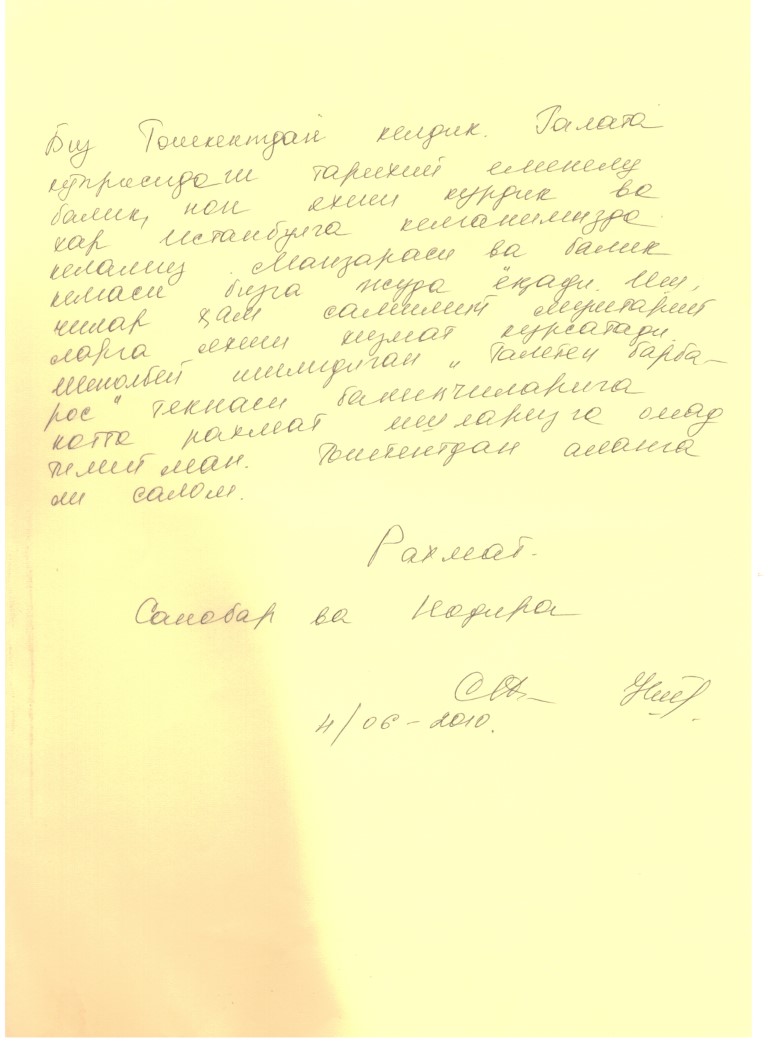 Биз Тошкентдан келдик. Галата
куприсидаги тарихий еменелу
балик, нон яхши курдик ва
хар Истанбулга келганимизда
келамиз. Манзараси ва балик
кемаси бизга жуда ёқади. Иш,
чилар ҳам самимий муштарий
ларга яхши хизмат курсатади.
"Барба-
рос" текнаси баликчиларига
котта рахмат ишларизга омад
тилийман. Тошкентдан аланга
ли салом.
Рахмат.
Санобар ва Нодира
4/06-2010.